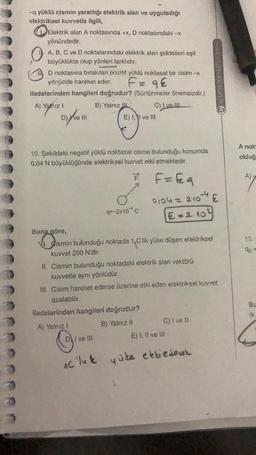 -q yüklü cismin yarattığı elektrik alan ve uyguladığı
elektriksel kuvvetle ilgili,
I. Elektrik alan A noktasında +x, D noktasındaki -x
yönündedir.
II. A, B, C ve D noktalarındaki elektrik alan şiddetleri eşit
büyüklükte olup yönleri farklıdır.
III. D noktasına bırakılan pozitif yüklü noktasal bir cisim -x
yönünde hareket eder.
F = qE
ifadelerinden hangileri doğrudur? (Sürtünmeler önemsizdir.)
A) Yalnız I B) Yalnız III C) I ve III
D) I ve III E) I, II ve III
10. Şekildeki negatif yüklü noktasal cisme bulunduğu konumda
0,04 N büyüklüğünde elektriksel kuvvet etki etmektedir.
F
F = Eq
0,04 = 2·10⁻⁴ E
E = 2·10²
q=-2x10⁻⁴ C
Buna göre,
I. Cismin bulunduğu noktada 1 C'lik yüke düşen elektriksel
kuvvet 200 N'dir.
II. Cismin bulunduğu noktadaki elektrik alan vektörü
kuvvetle aynı yönlüdür.
III. Cisim hareket ederse üzerine etki eden elektriksel kuvvet
azalabilir.
ifadelerinden hangileri doğrudur?
A) Yalnız I B) Yalnız II C) I ve II
D) I ve III E) I, II ve III
1C'luk yüke etkiedecek
A nok
olduğ
A)
12.
Bu